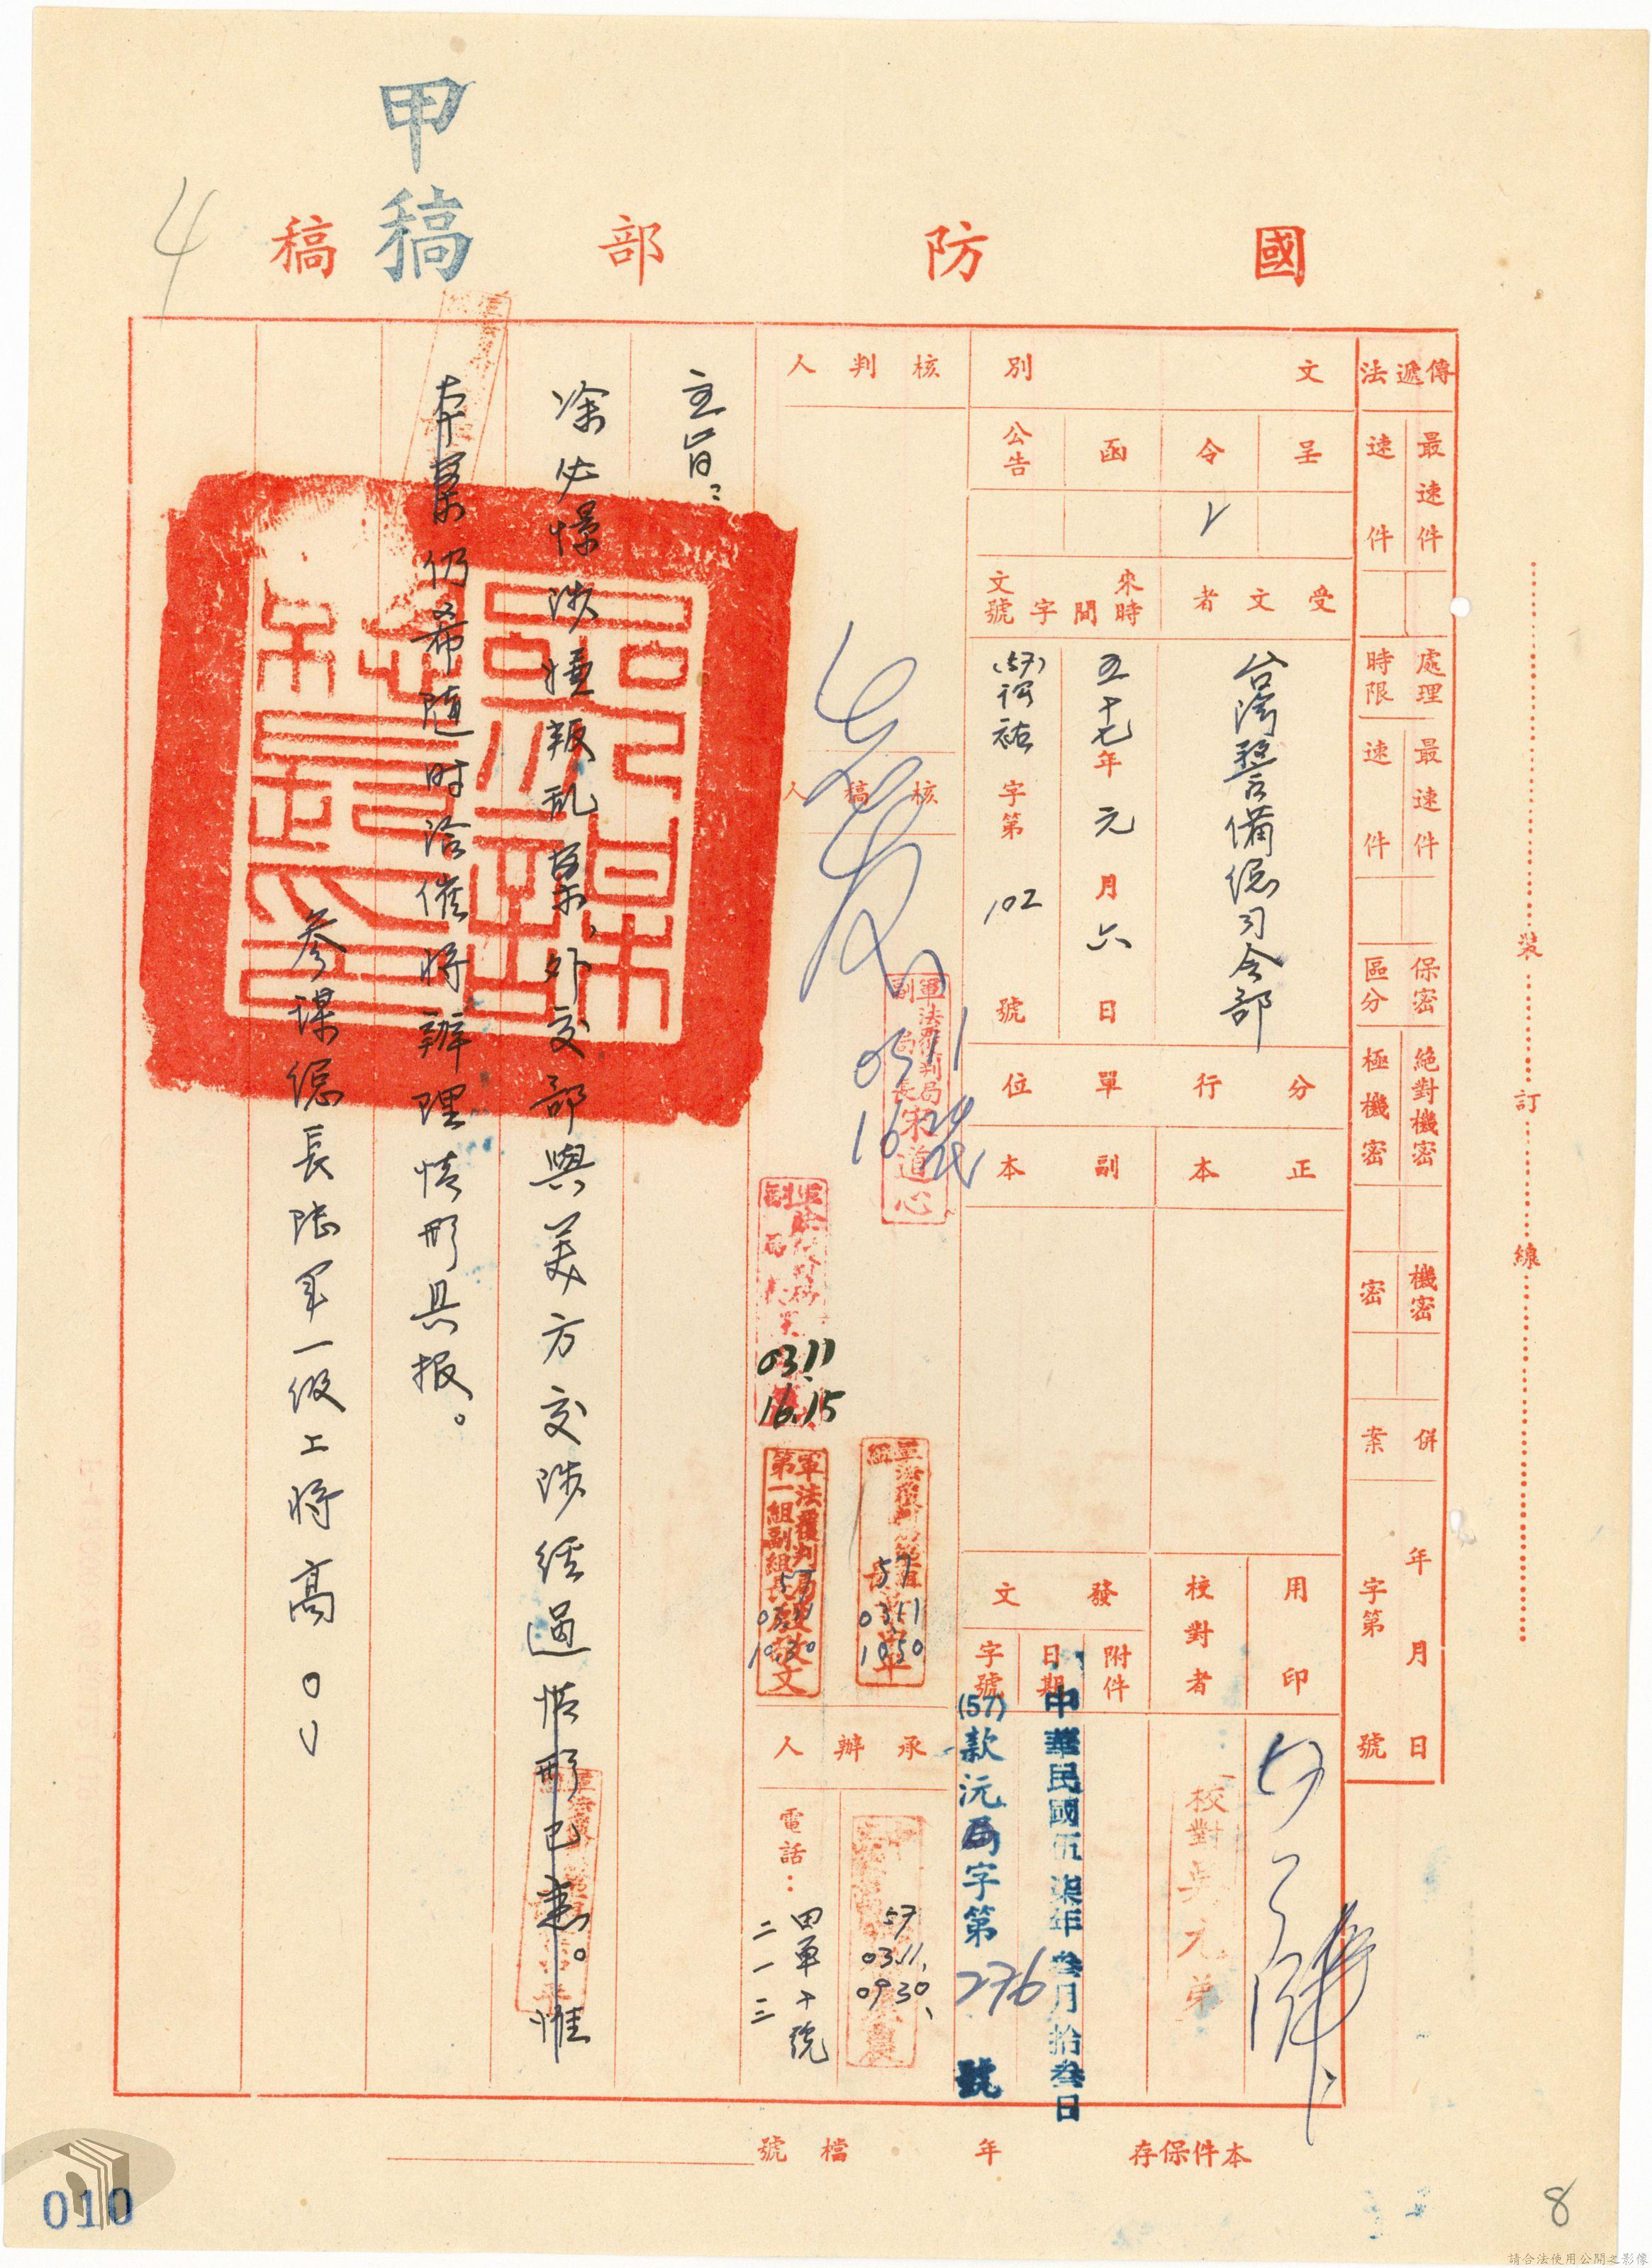 甲稿
國防部稿
4
傳遞法
最速件
速件
處理時限
最速件
速件
保密區分
絕對機密
極機密
機密
密
併案
年月日
字第號
文別
呈
令
函
公告
受文者
台灣警備總司令部
來文時間
五十七年元月六日
字號
(57)
字第102號
分行單位
正本
副本
用印
校對者
校對吳元弟
發文
附件
日期
中華民國伍柒年叁月拾叁日
字號
(57)欵沅局字第276號
核判人
核稿人
軍法覆判局副局長宋道心
0311
03.11
16.15
軍法覆判局第一組副組長
57
0311
1050
承辦人
57
03.11.
0930
電話：
田單十號
二一三
主旨：
涂必憬涉嫌叛乱案，外交部與美方交涉經過情形已悉。惟
本案仍希隨时洽催將辦理情形具报。
參謀總長陸軍一級上將高○○
裝訂線
本件保存年
檔號
010
8
請合法使用公開之影像